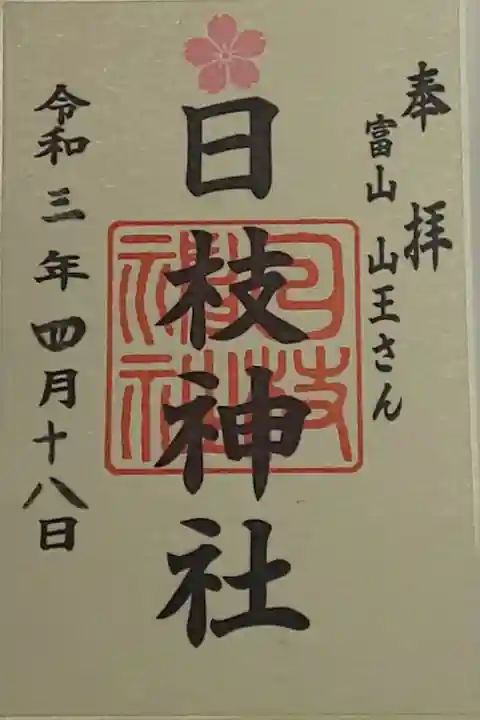 奉拝
富山 山王さん
日枝神社
令和三年四月十八日